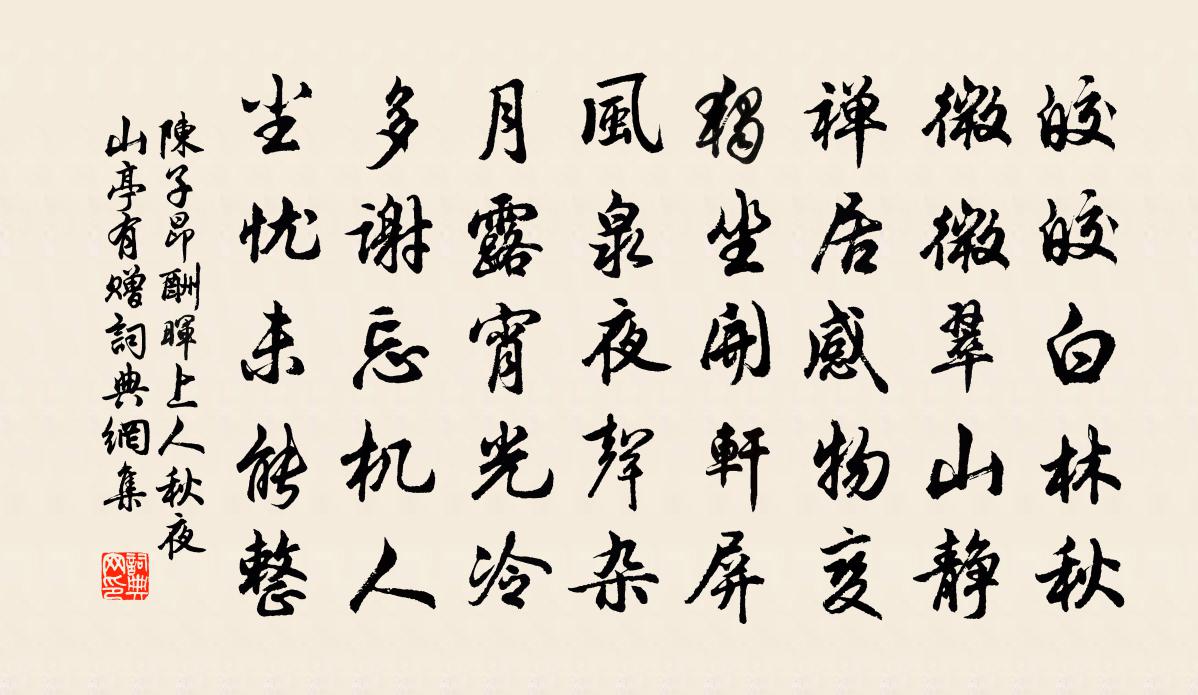 皎皎白林秋
微微翠山静
禅居感物变
獨坐開軒屏
風泉夜聲杂
月露宵光冷
多謝忘机人
尘忧未能整
陳子昂酬暉上人秋夜
山亭有赠詞典網集
詞典网印